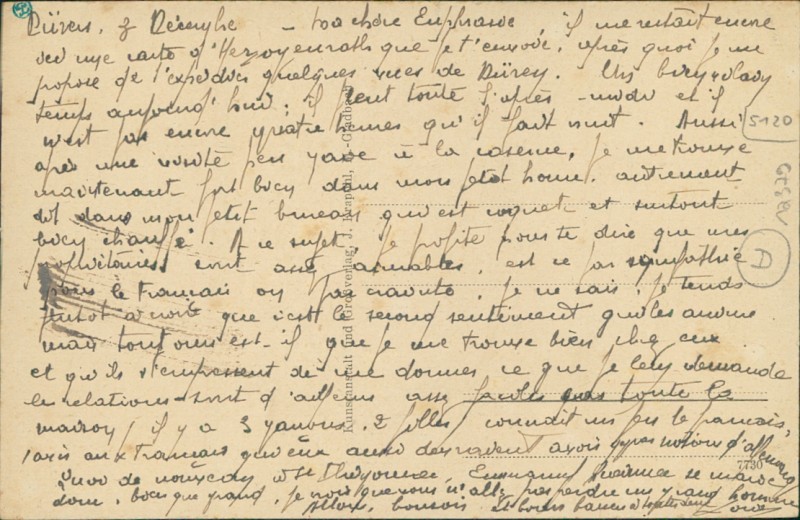 Düren, 3 Décembre — ma chère Euphrasie il me restait encore
une carte d'Herzogenrath que je t'envoie, après quoi je me
propose de t'expédier quelques vues de Düren. Un bien vilain
temps aujourd'hui : il pleut toute l'après-midi et il
n'est pas encore quatre heures qu'il fait nuit. Aussi
après une visite peu à la caserne, je me trouve
maintenant fort bien dans mon petit home, autrement
dit dans mon petit bureau qu'est coquet et surtout
bien chauffé. A ce sujet je profite pour te dire que mes
propriétaires sont assez aimables, est ce par sympathie
pour le Français ou par crainte, je ne sais, je tends
plutôt à croire que c'est le second sentiment qui les anime
mais toujours est-il que je me trouve bien chez eux
et qu'ils s'empressent de me donner ce que je leur demande
le relations sont d'ailleurs assez faciles toute la
maison (il y a 3 2 filles) connait un peu le français,
tandis aux Français qu'eux aussi devraient avoir notions d'allemand
Quoi de nouveau Emmanuel se marie
donc, bien que grand, je vois que vous n'allez pas perdre un grand homme
Allons, bonsoir et bons baisers à toutes deux
5120
A
7730
Kunstanstalt und Verlag, J. -Gladbach